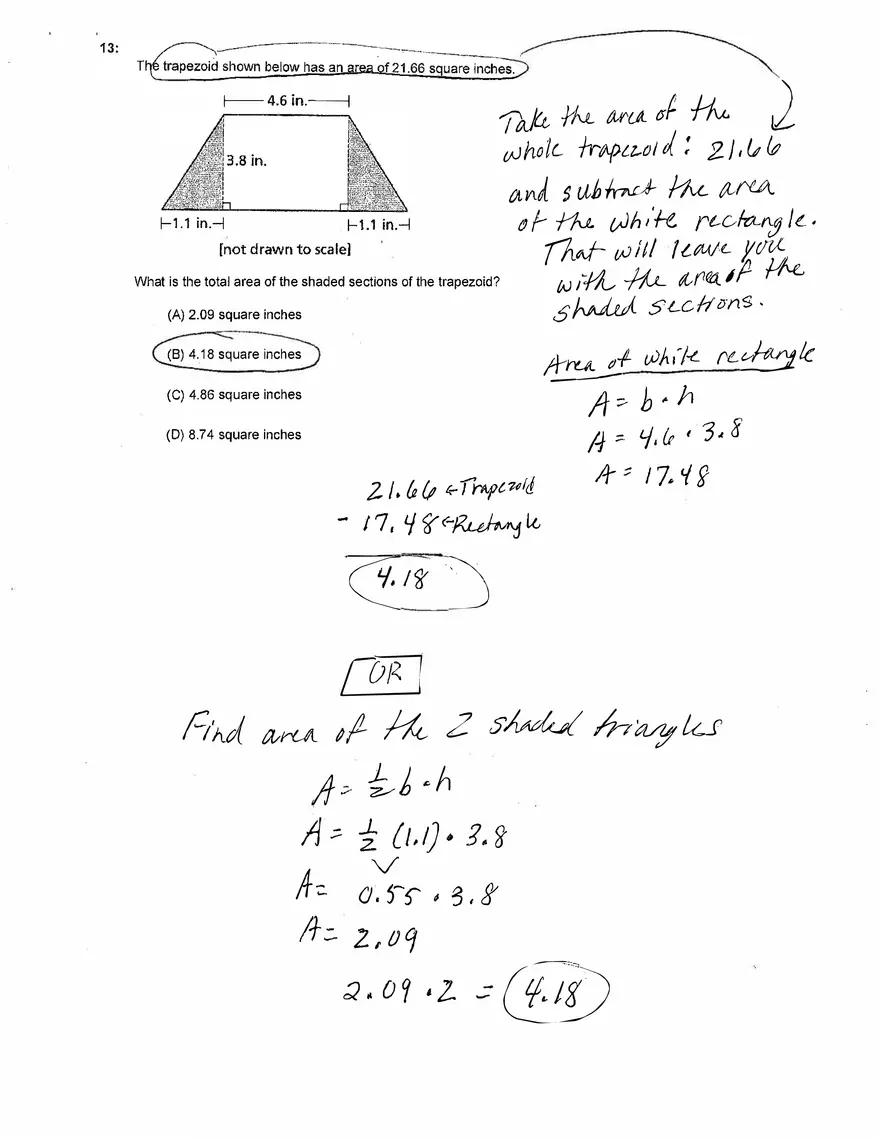 13:
The trapezoid shown below has an area of 21.66 square inches.
4.6 in.
3.8 in.
1.1 in.
1.1 in.
[not drawn to scale]
What is the total area of the shaded sections of the trapezoid?
(A) 2.09 square inches
(B) 4.18 square inches
(C) 4.86 square inches
(D) 8.74 square inches
Take the area of the
whole trapezoid: 21.66
and subtract the area
of the white rectangle.
That will leave you
with the area of the
shaded sections.
Area of white rectangle
A = b · h
A = 4.6 · 3.8
A = 17.48
21.66 ← Trapezoid
- 17.48 ← Rectangle
4.18
OR
Find area of the 2 shaded triangles
A = 1/2 b · h
A = 1/2 (1.1) · 3.8
A = 0.55 · 3.8
A = 2.09
2.09 · 2 = 4.18